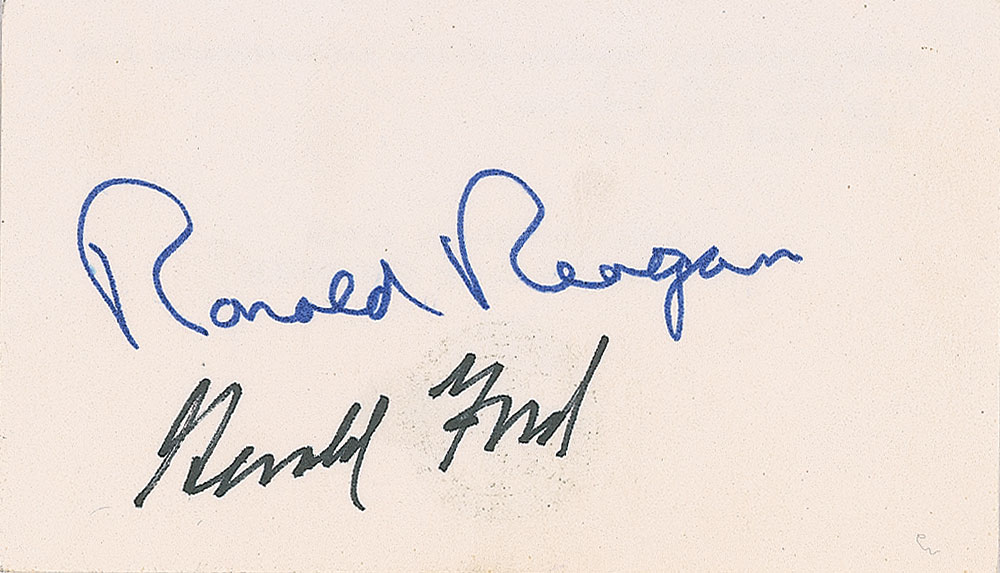 Ronald Reagan
Gerald Ford